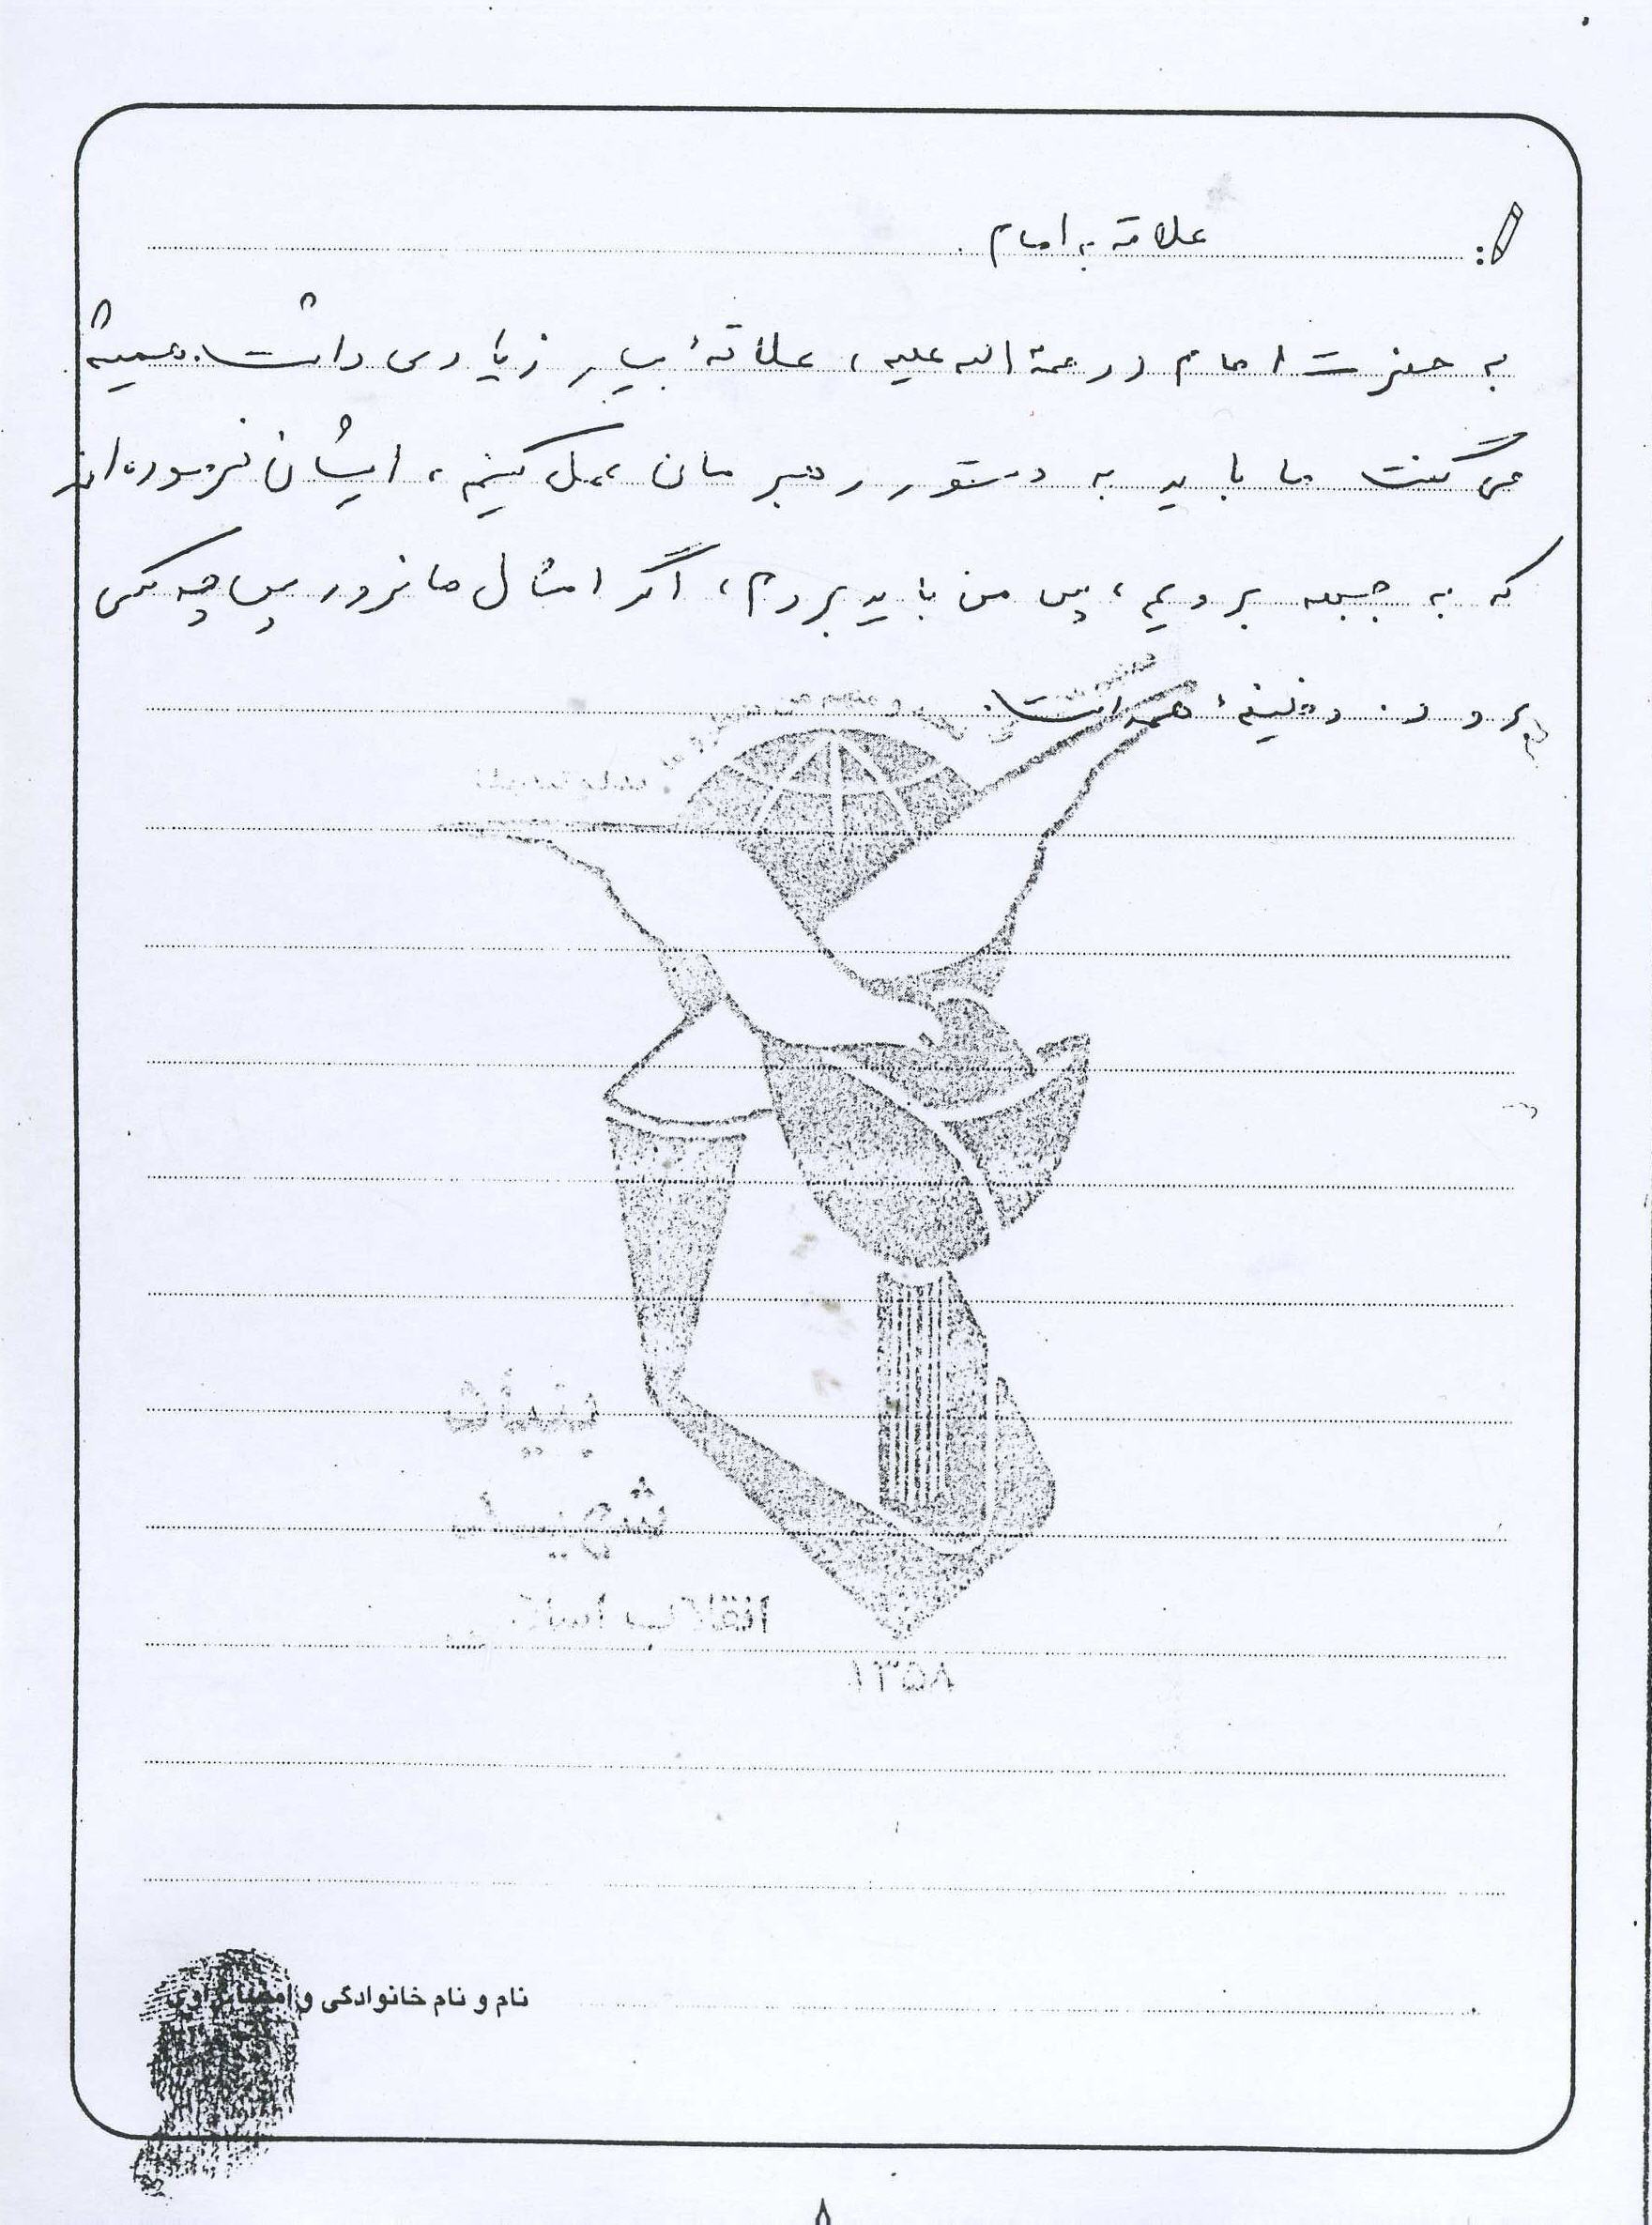 علاقه به امام
به حضرت امام (رحمة الله علیه) علاقهٔ بسیار زیادی داشت. همیشه
می‌گفت ما باید به دستور رهبرمان عمل کنیم، ایشان فرموده‌اند
که به جبهه برویم، پس من باید بروم، اگر امثال ما نرود پس چه کسی
برود. وظیفهٔ همه است.
بنیاد
شهید
انقلاب اسلامی
۱۳۵۸
نام و نام خانوادگی و امضا راوی
۸